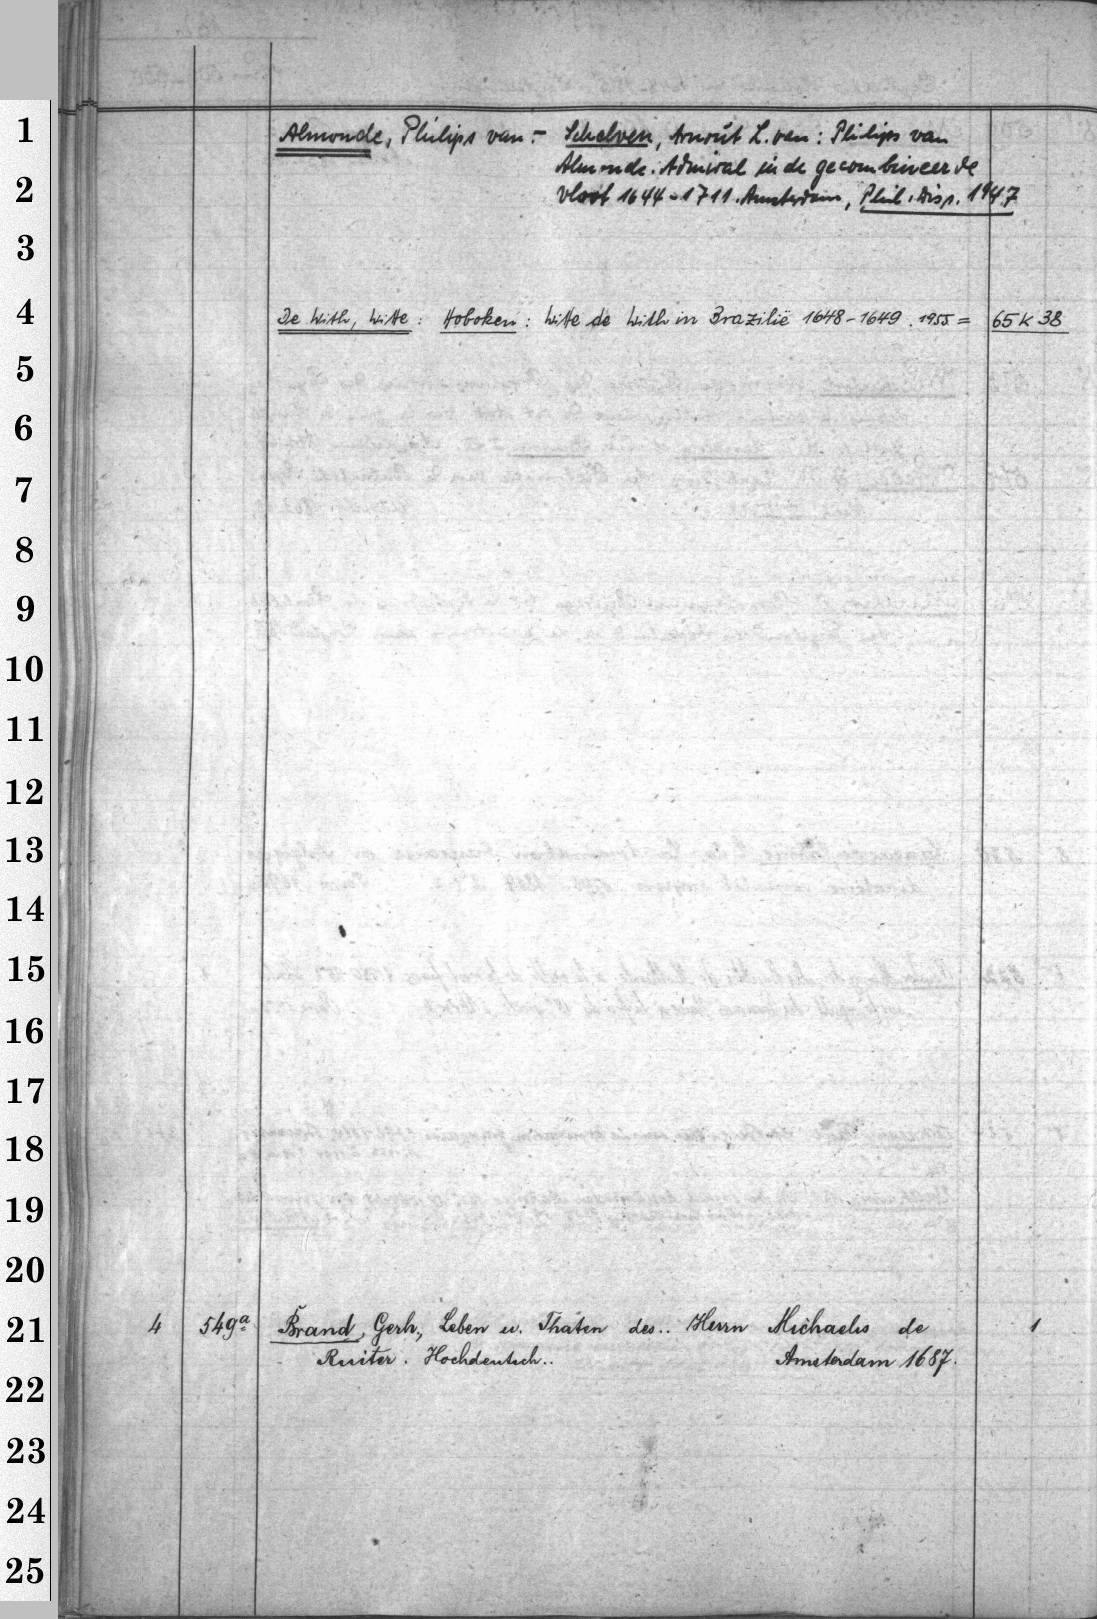 1
Almonde, Philips van :- Schelven, Arnout L. van : Philips van
Almonde. Admiral in de gecombineerde
2
vloot 1644-1711. Amsterdam, Phil. Disp. 1947
3
4
De With, Witte : Hoboken : Witte de With in Brazilië 1648-1649. 1955 = 65 K 38
5
6
7
8
9
10
11
12
13
14
15
16
17
18
19
20
21
4 549a Brand, Gerh., Leben u. Thaten des.. Herrn Michaelis de 1
Ruiter. Hochdeutsch.. Amsterdam 1687.
22
23
24
25